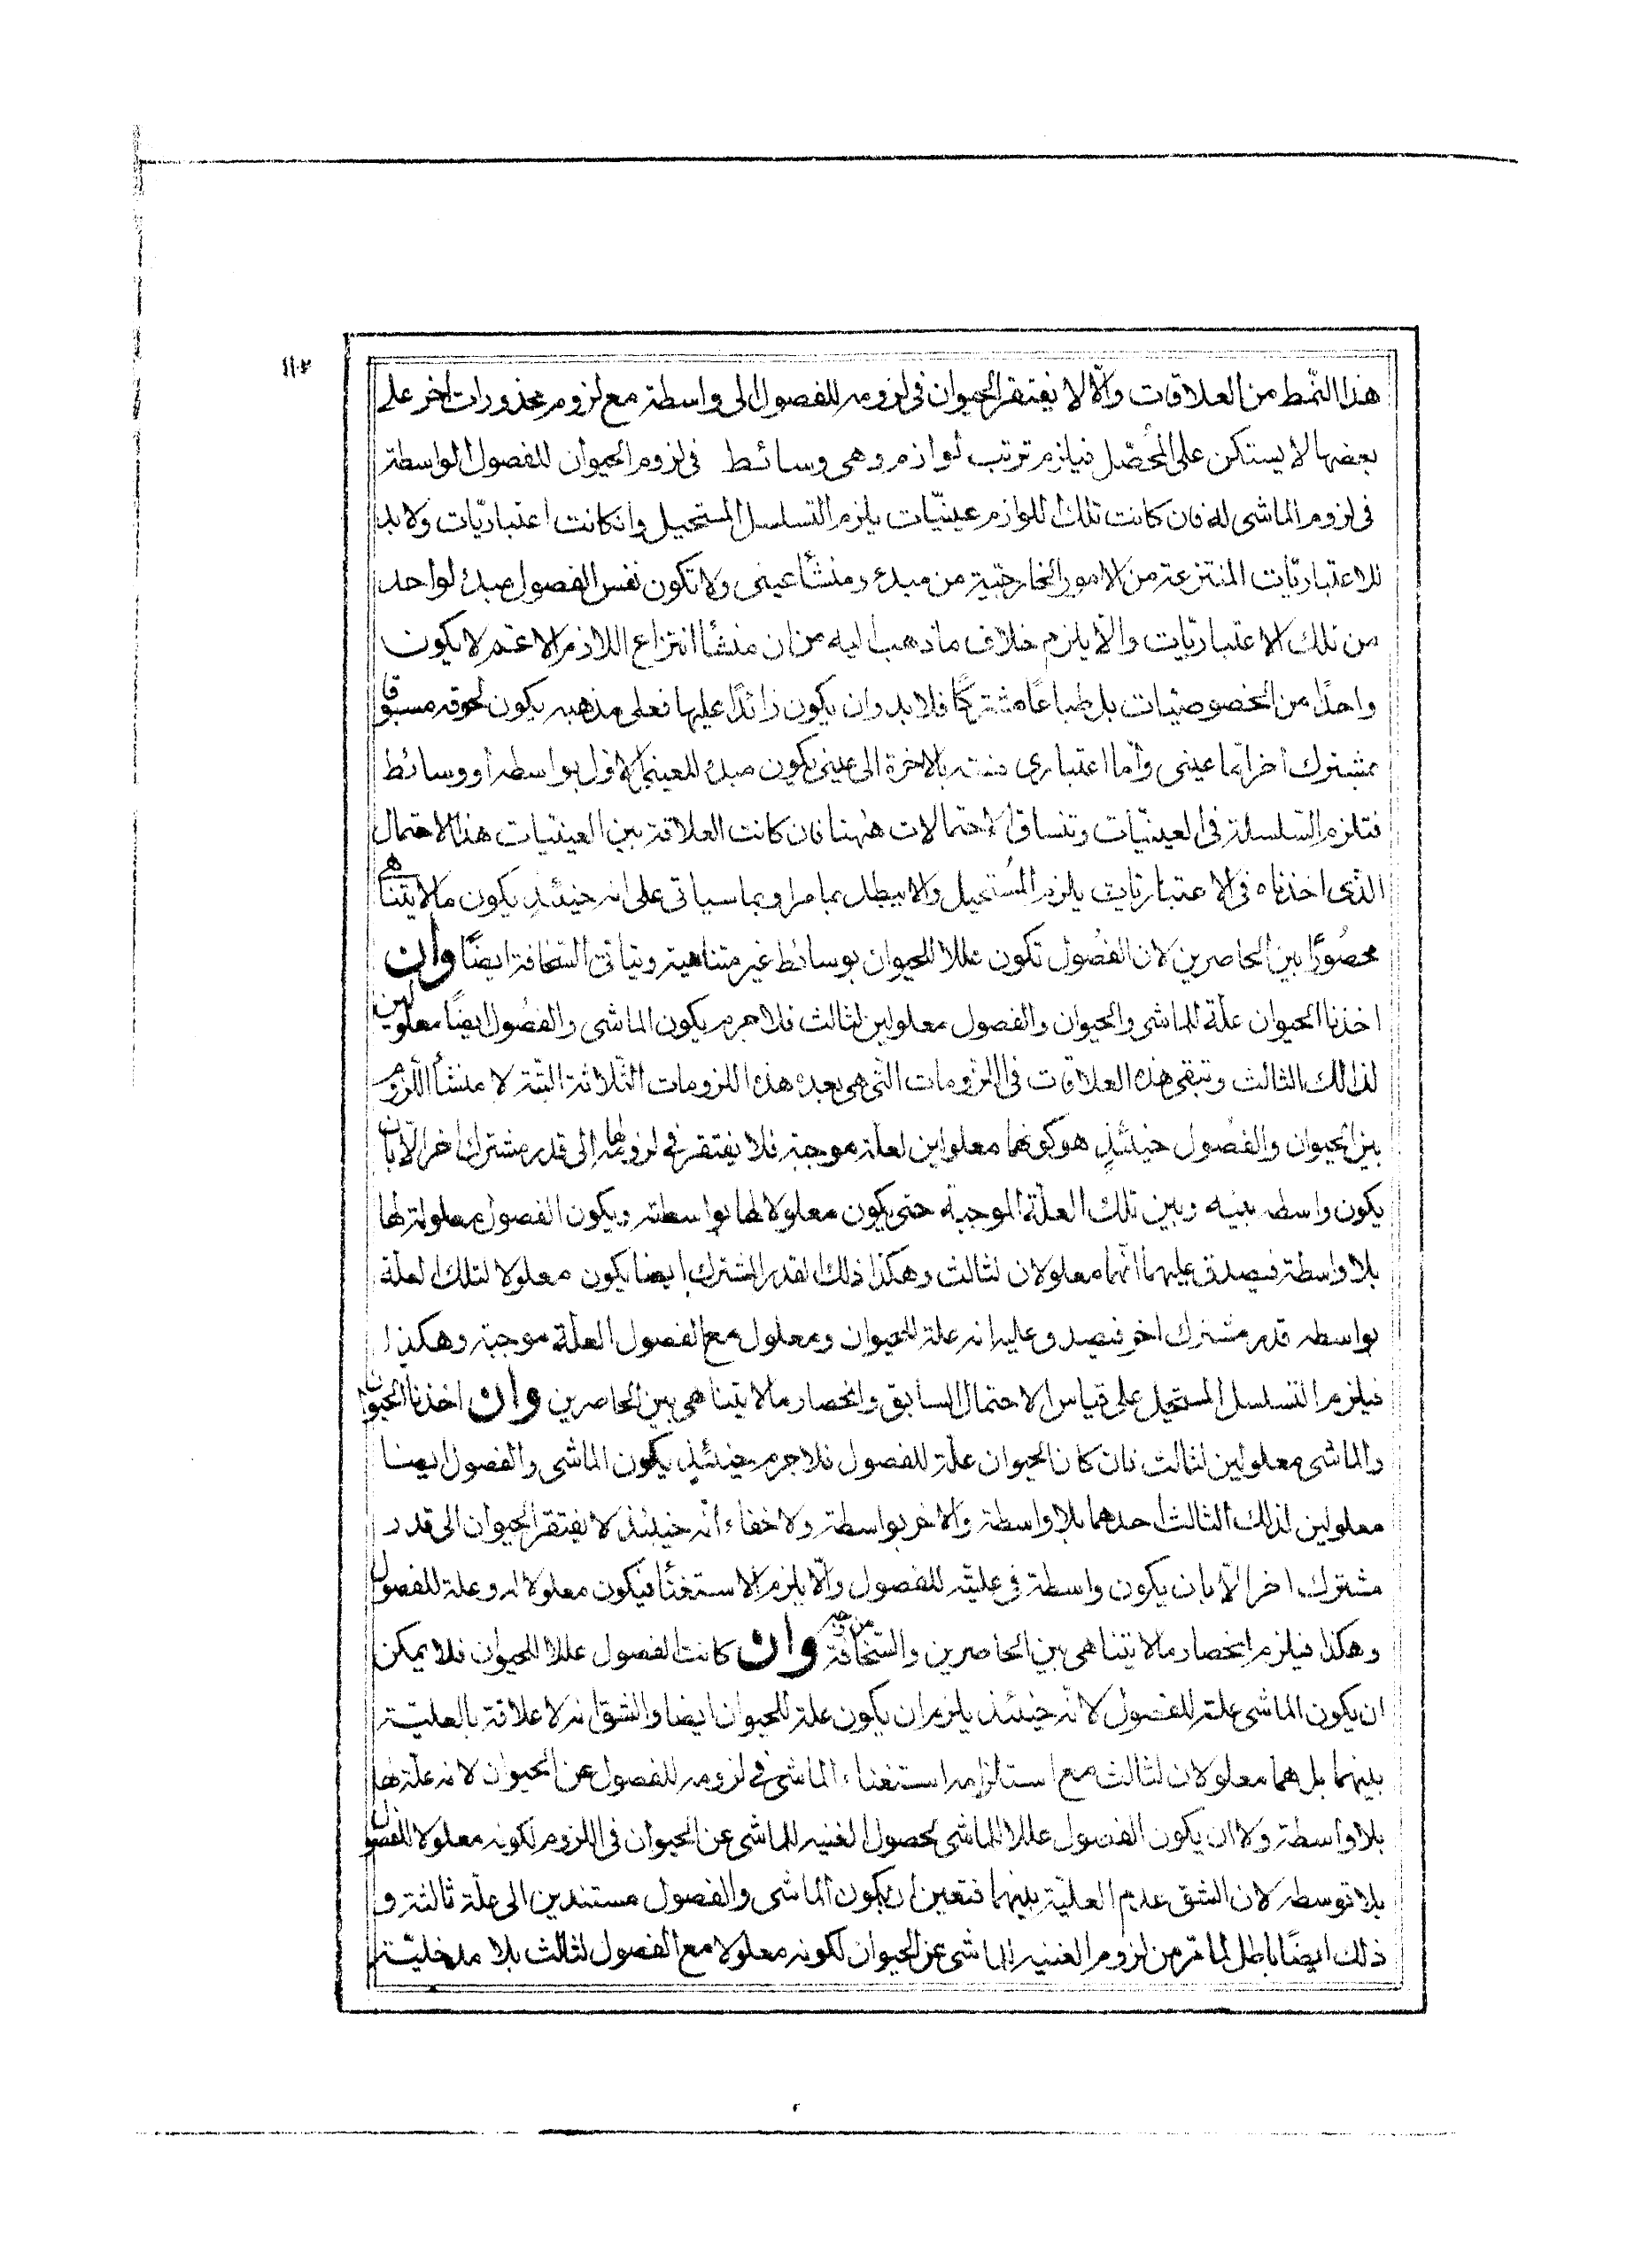 ١١٠٢
هذا النّمط من العلاقات والّا لا يفتقر الحيوان في لزومه للفصول الى واسطة مع لزوم محذورات اخر على
بعضها لا يستكن على المُحصّل فيلزم ترتب لوازم وهى وسائط في لزوم الحيوان للفصول الواسطة
فى لزوم الماشى له فان كانت تلك اللوازم عينيّات يلزم التسلسل المستحيل وانكانت اعتباريّات ولا بد
للاعتباريّات المنتزعة من الامور الخارجيّة من مبدء ومنشأ عينى ولا تكون نفس الفصول مبدء لواحد
من تلك الاعتباريّات والّا يلزم خلاف ما ذهب اليه من ان منشأ انتزاع اللازم الاعمّ لا يكون
واحدًا من الخصوصيّات بل طباعًا مشتركًا فلا بد وان يكون زائدًا عليها فعلى مذهبه يكون لحوقه مسبوقا
بمشترك اخر امّا عينى وأمّا اعتبارى منته بالاخرة الى عينى يكون مبدء للعينى الاول بواسطه أو وسائط
فتلزم السّلسلة في العينيّات وتنساق الاحتمالات ههنا فان كانت العلاقة بين العينيّات هذا الاحتمال
الّذى اخذناه فى الاعتباريّات يلزم المُستحيل والا يبطل بما مر او بما سياتى على انه حينئذٍ يكون ما لا يتناهى
محصُورًا بين الحاصرين لان الفُصول تكون عللا للحيوان بوسائط غير متناهية وتياتى السّخافة ايضًا وان
اخذنا الحيوان علّة للماشى والحيوان والفصول معلولين لثالث فلا جرم يكون الماشى والفصُول ايضًا معلولين
لذلك الثالث وتبقى هذه العلاقات فى اللزومات الّتى هى بعد هذه اللزومات الثّلاثة البتّة لا منشأ اللّزوم
بين الحيوان والفصُول حينئذٍ هو كونهما معلولين لعلّة موجبة فلا يفتقر في لزومه لها الى قدر مشترك اخر الّا بان
يكون واسطه بينه وبين تلك العلّة الموجبة حتى يكون معلولا لها بواسطته ويكون الفصول معلولة لها
بلا واسطة فيصدق عليهما انّهما معلولان لثالث وهكذا ذلك القدر المشترك ايضا يكون معلولا لتلك العلّة
بواسطه قدر مشترك اخر فيصدق عليه انه علة للحيوان ومعلول مع الفصول لعلّة موجبة وهكذا
فيلزم التسلسل المستحيل على قياس الاحتمال السابق وانحصار ما لا يتناهى بين الحاصرين وان اخذنا الحيوان
والماشى معلولين لثالث فان كان الحيوان علّة للفصول فلا جرم حينئذٍ يكون الماشى والفصول ايضا
معلولين لذلك الثالث احدهما بلا واسطة والاخر بواسطة ولا خفاء انّه حينئذ لا يفتقر الحيوان الى قدر
مشترك اخر الّا بان يكون واسطة في عليته للفصول والّا يلزم الاستغنأ فيكون معلولا له وعلة للفصول
وهكذا فيلزم انحصار ما لا يتناهى بين الحاصرين والسّخافة وان كانت الفصول عللا للحيوان فلا يمكن
ان يكون الماشى علة للفصول لانّه حينئذ يلزم ان يكون علة للحيوان ايضا والشق انه لا علاقة بالعليّة
بينهما بل هما معلولان لثالث مع استلزامه استغناء الماشى في لزومه للفصول عن الحيوان لانه علّة لها
بلا واسطة ولا ان يكون الفصول عللا للماشى لحصول الغنيه للماشى عن الحيوان فى اللزوم لكونه معلولا للفصول
بلا توسطه لان الشق عدم العليّة بينهما فتعين ان يكون الماشى والفصول مستندين الى علّة ثالثة و
ذلك ايضًا باطل لما مرّ من لزوم الغنيه للماشى عن الحيوان لكونه معلولا مع الفصول لثالث بلا مدخليّة